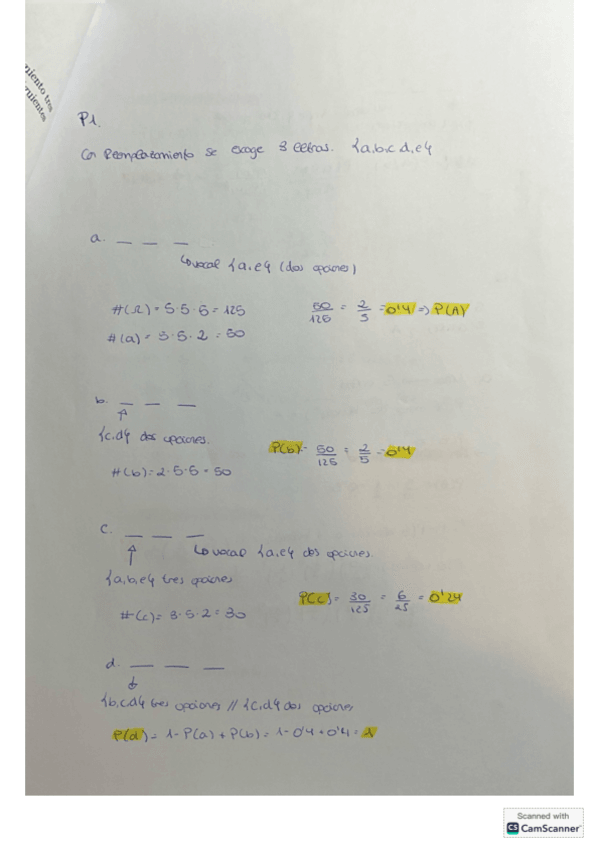 miento tres
guientes
P1.
Con Reemplazamiento se escoge 3 letras. {a,b,c,d,e}
a. _ _ _
↳ vocal {a,e} (dos opciones)
#(Ω) = 5·5·5 = 125
50/125 = 2/5 = 0'4 => P(A)
#(a) = 5·5·2 = 50
b. _ _ _
{c,d} dos opciones.
P(b) = 50/125 = 2/5 = 0'4
#(b) = 2·5·5 = 50
c. _ _ _
↳ vocal {a,e} dos opciones.
{a,b,e} tres opciones
P(c) = 30/125 = 6/25 = 0'24
#(c) = 3·5·2 = 30
d. _ _ _
{b,c,d} tres opciones // {c,d} dos opciones
P(d) = 1 - P(a) + P(b) = 1 - 0'4 + 0'4 = 1
Scanned with
CS CamScanner